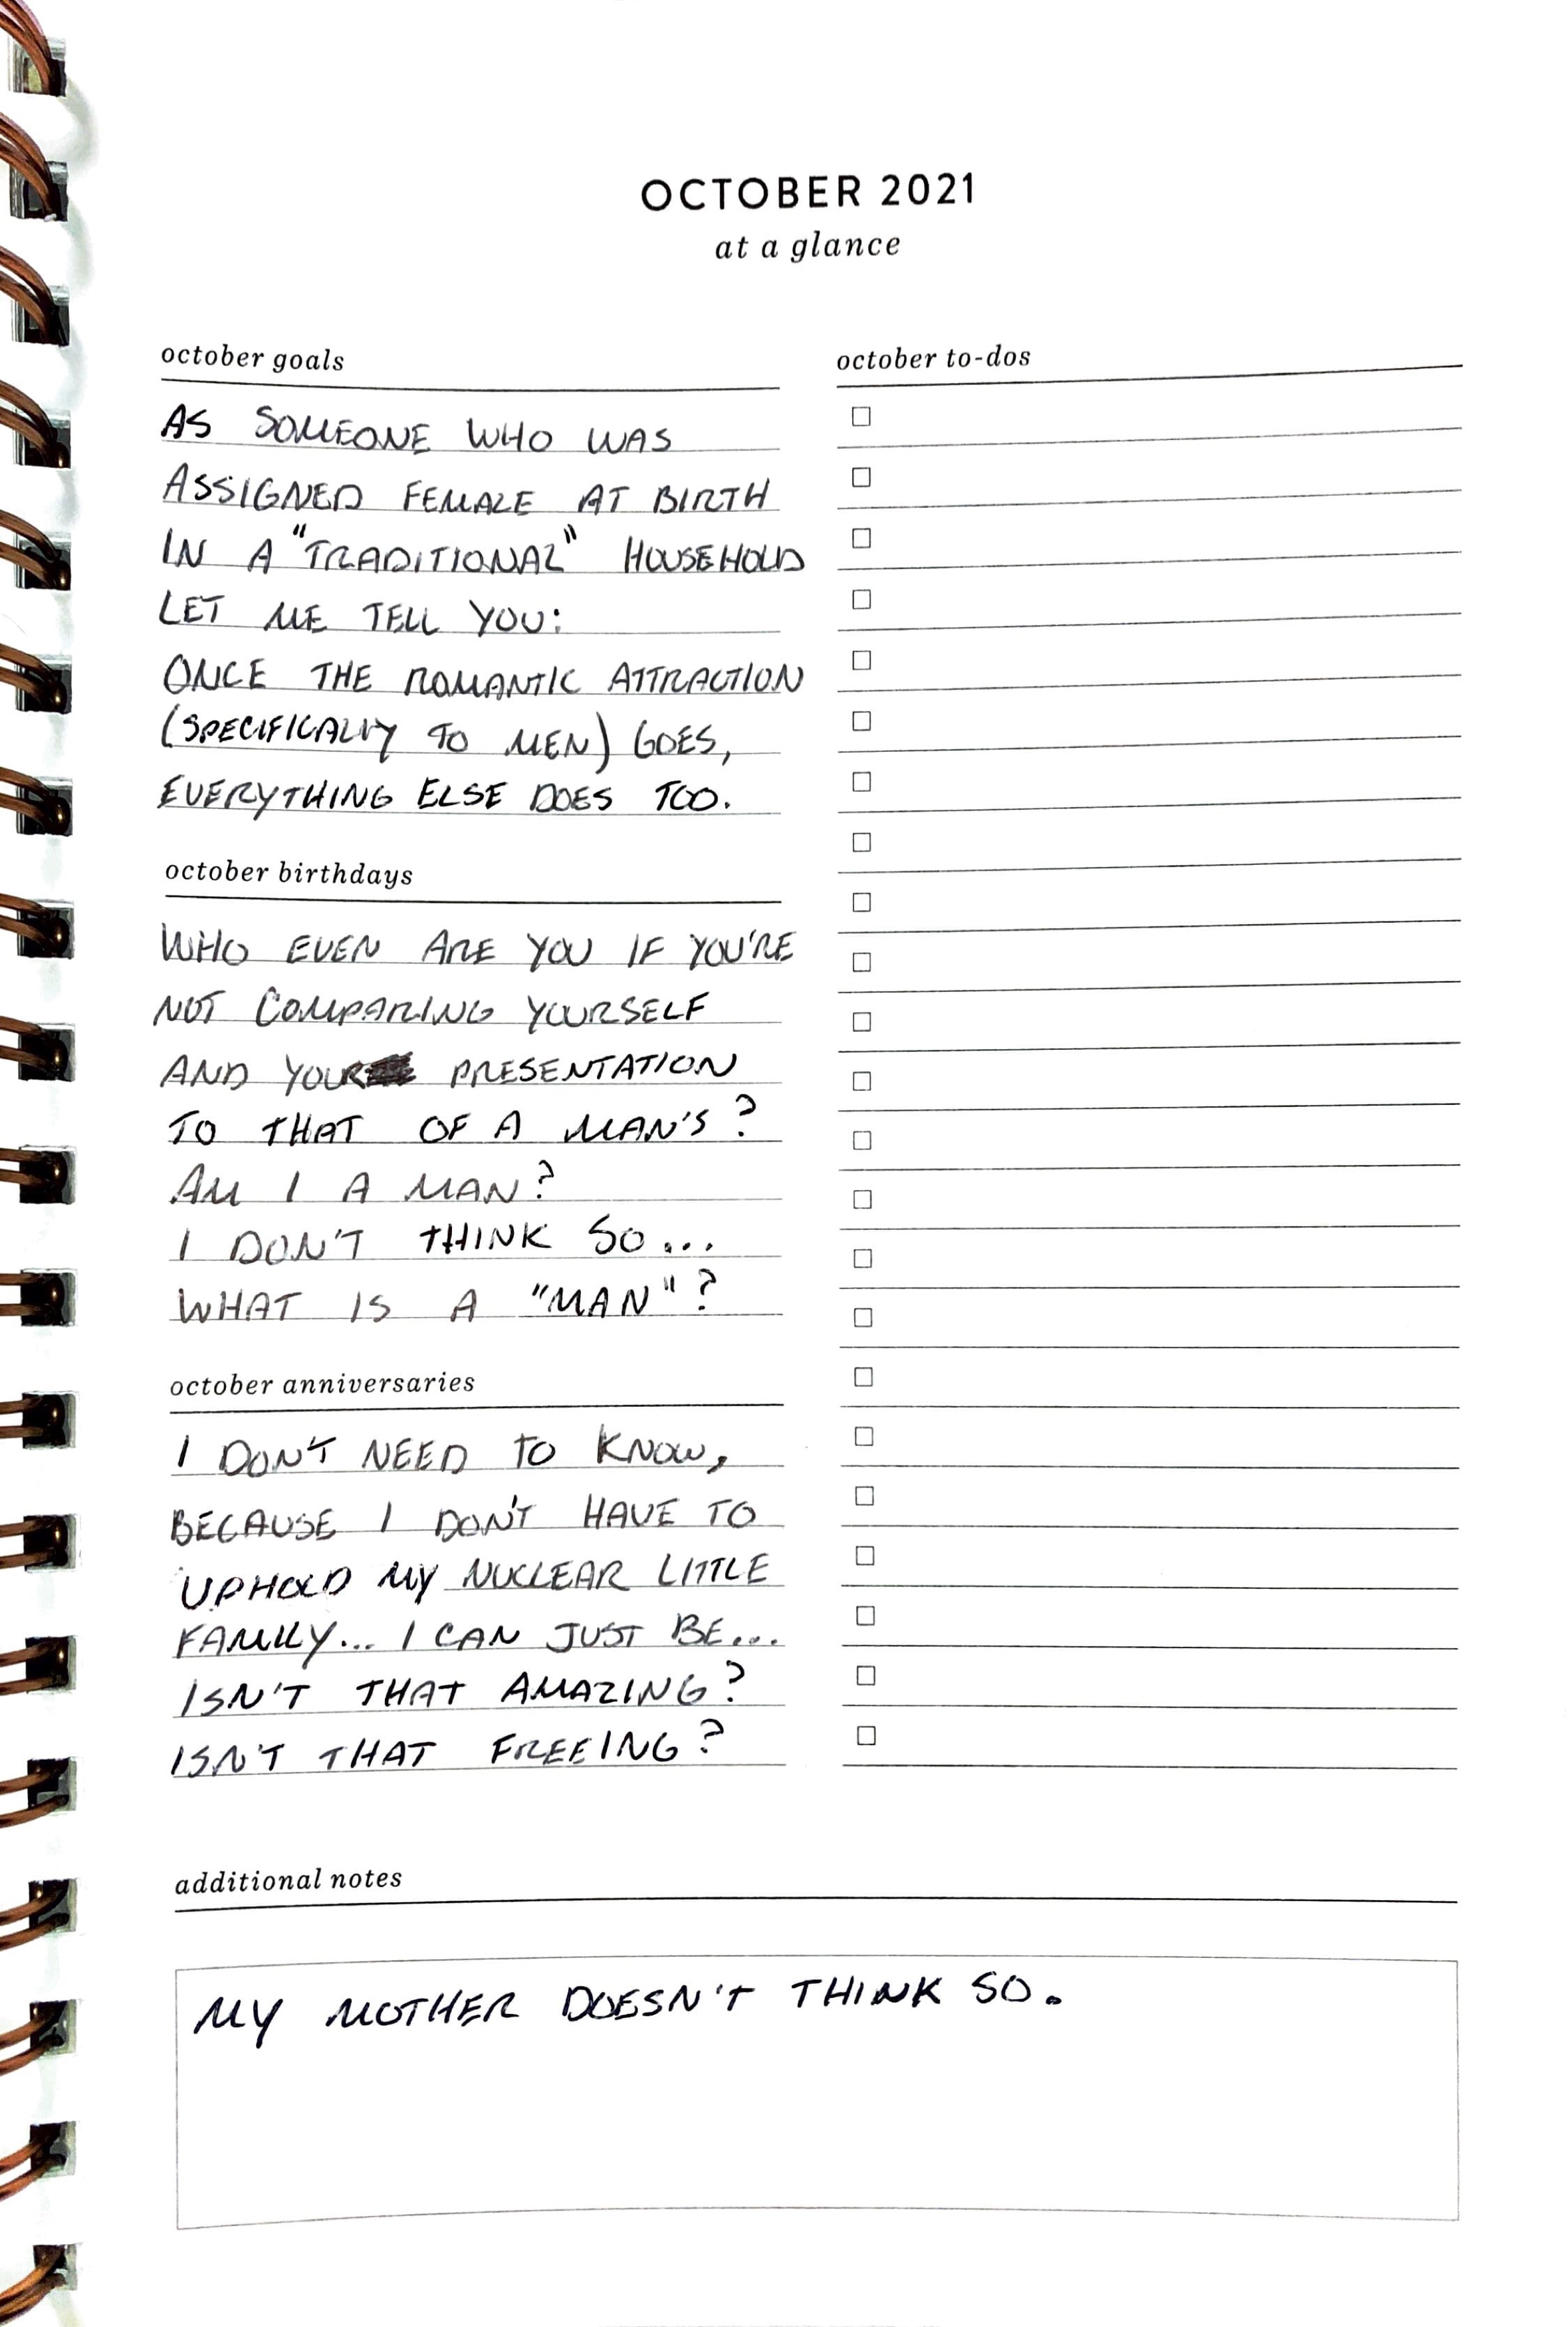 OCTOBER 2021
at a glance
october goals
AS SOMEONE WHO WAS
ASSIGNED FEMALE AT BIRTH
IN A "TRADITIONAL" HOUSEHOLD
LET ME TELL YOU:
ONCE THE ROMANTIC ATTRACTION
(SPECIFICALLY TO MEN) GOES,
EVERYTHING ELSE DOES TOO.
october birthdays
WHO EVEN ARE YOU IF YOU'RE
NOT COMPARING YOURSELF
AND YOUR PRESENTATION
TO THAT OF A MAN'S?
AM I A MAN?
I DON'T THINK SO...
WHAT IS A "MAN"?
october anniversaries
I DON'T NEED TO KNOW,
BECAUSE I DON'T HAVE TO
UPHOLD MY NUCLEAR LITTLE
FAMILY... I CAN JUST BE...
ISN'T THAT AMAZING?
ISN'T THAT FREEING?
october to-dos
additional notes
MY MOTHER DOESN'T THINK SO.